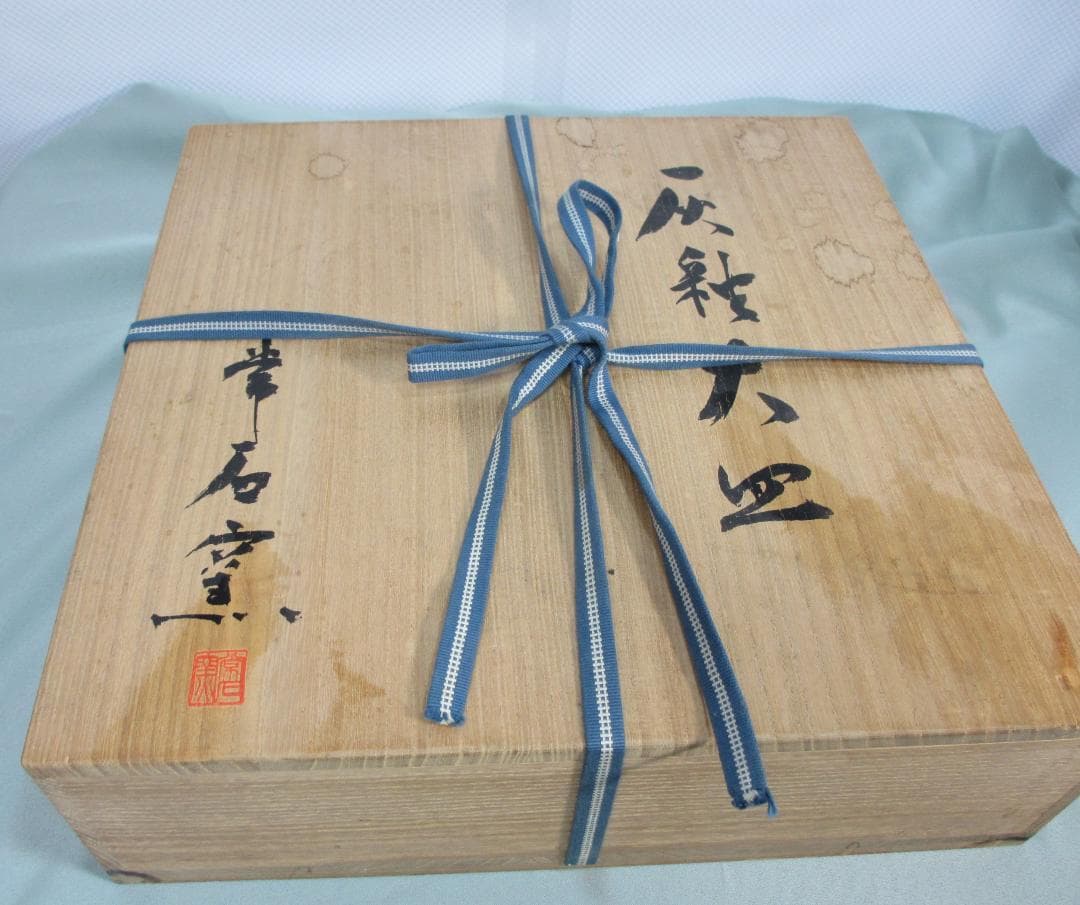 灰釉大皿
常石窯